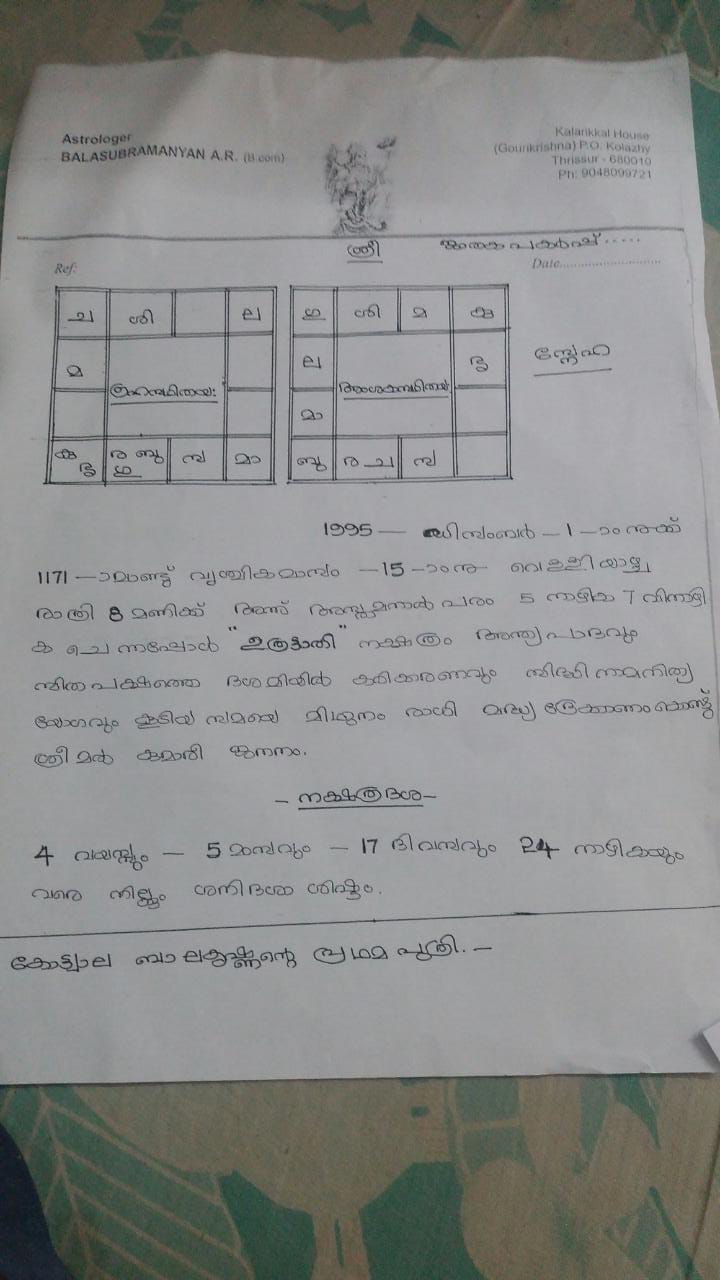 Astrologer
BALASUBRAMANYAN A.R. (B.com)
Kalarikkal House
(Gourikrishna) P.O. Kolazhy
Thrissur - 680010
Ph: 9048099721
ശ്രീ
ജാതക പകർപ്പ്.....
Ref:
Date..............................
ച ശി ല
മ
ഗ്രഹസ്ഥിതയഃ
കു ര ബു സ മാ
ശി മ കു
ല
അംശകസ്ഥിതയഃ
മാ
ബു ര ച സ
സ്നേഹ
1995 — ഡിസംബർ — 1 — ാം നുക്ക്
1171 — ാമാണ്ട് വൃശ്ചികമാസം — 15 — ാം നു വെള്ളിയാഴ്ച
രാത്രി 8 മണിക്ക് അന്ന് അസ്തമനാൽ പരം 5 നാഴിക 7 വിനാഴി
ക ചെന്നപ്പോൾ "ഉത്രട്ടാതി" നക്ഷത്രം അന്ത്യപാദവും
സിതപക്ഷത്തെ ദശമിയിൽ കരിക്കരണവും സിദ്ധിനാമനിത്യ
യോഗവും കൂടിയ സമയെ മിഥുനം രാശി മദ്ധ്യ ദ്രേക്കാണംകൊണ്ട്
ശ്രീമൽ കുമാരീ ജനനം.
— നക്ഷത്രദശ —
4 വയസ്സും — 5 മാസവും — 17 ദിവസവും 24 നാഴികയും
വരെ നില്ക്കും ശനിദശാ ശിഷ്ടം.
ബാലകൃഷ്ണന്റെ പ്രഥമ പുത്രി. —